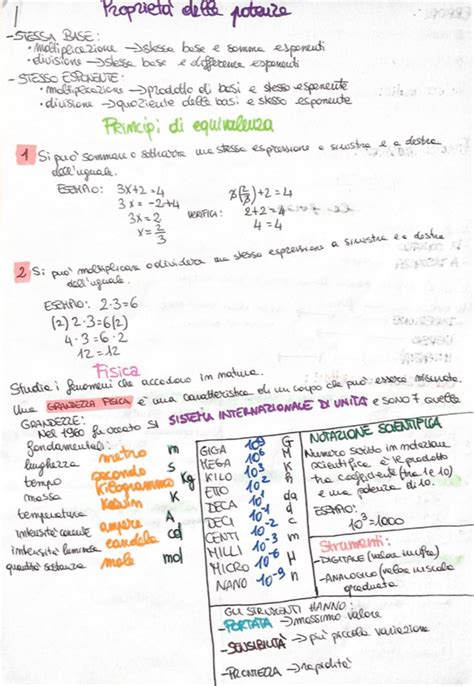 1
Proprietà delle potenze
- STESSA BASE:
• moltiplicazione → stessa base e somma esponenti
• divisione → stessa base e differenza esponenti
- STESSO ESPONENTE:
• moltiplicazione → prodotto di basi e stesso esponente
• divisione → quoziente delle basi e stesso esponente
Principi di equivalenza
1 Si può sommare o sottrarre una stessa espressione a sinistra e a destra
dell'uguale.
ESEMPIO: 3x+2=4
3x = -2+4
3x=2
x=2/3
VERIFICA:
3(2/3)+2=4
2+2=4
4=4
2 Si può moltiplicare o dividere una stessa espressione a sinistra e a destra
dell'uguale.
ESEMPIO: 2·3=6
(2)2·3=6(2)
4·3=6·2
12=12
Fisica
Studia i fenomeni che accadono in natura.
Una GRANDEZZA FISICA è una caratteristica di un corpo che può essere misurata.
GRANDEZZE:
Nel 1960 fu creato il SISTEMA INTERNAZIONALE DI UNITÀ e sono 7 quelle
fondamentali:
lunghezza metro m
tempo secondo s
massa kilogrammo Kg
temperatura kelvin K
intensità corrente ampere A
intensità luminosa candela cd
quantità sostanza mole mol
GIGA 10^9 G
MEGA 10^6 M
KILO 10^3 K
ETTO 10^2 h
DECA 10^1 da
DECI 10^-1 d
CENTI 10^-2 c
MILLI 10^-3 m
MICRO 10^-6 μ
NANO 10^-9 n
NOTAZIONE SCIENTIFICA
Numero scritto in notazione
scientifica è il prodotto
tra coefficiente (tra 1 e 10)
e una potenza di 10.
ESEMPIO:
10^3=1000
Strumenti:
- DIGITALE (valore in cifre)
- ANALOGICO (valore in scala
graduata)
GLI STRUMENTI HANNO:
- PORTATA → massimo valore
- SENSIBILITÀ → più piccola variazione
- PRONTEZZA → rapidità